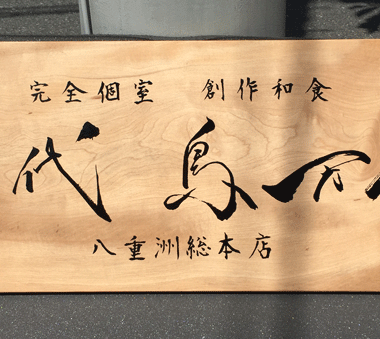 完全個室 創作和食
代 鳥万
八重洲総本店